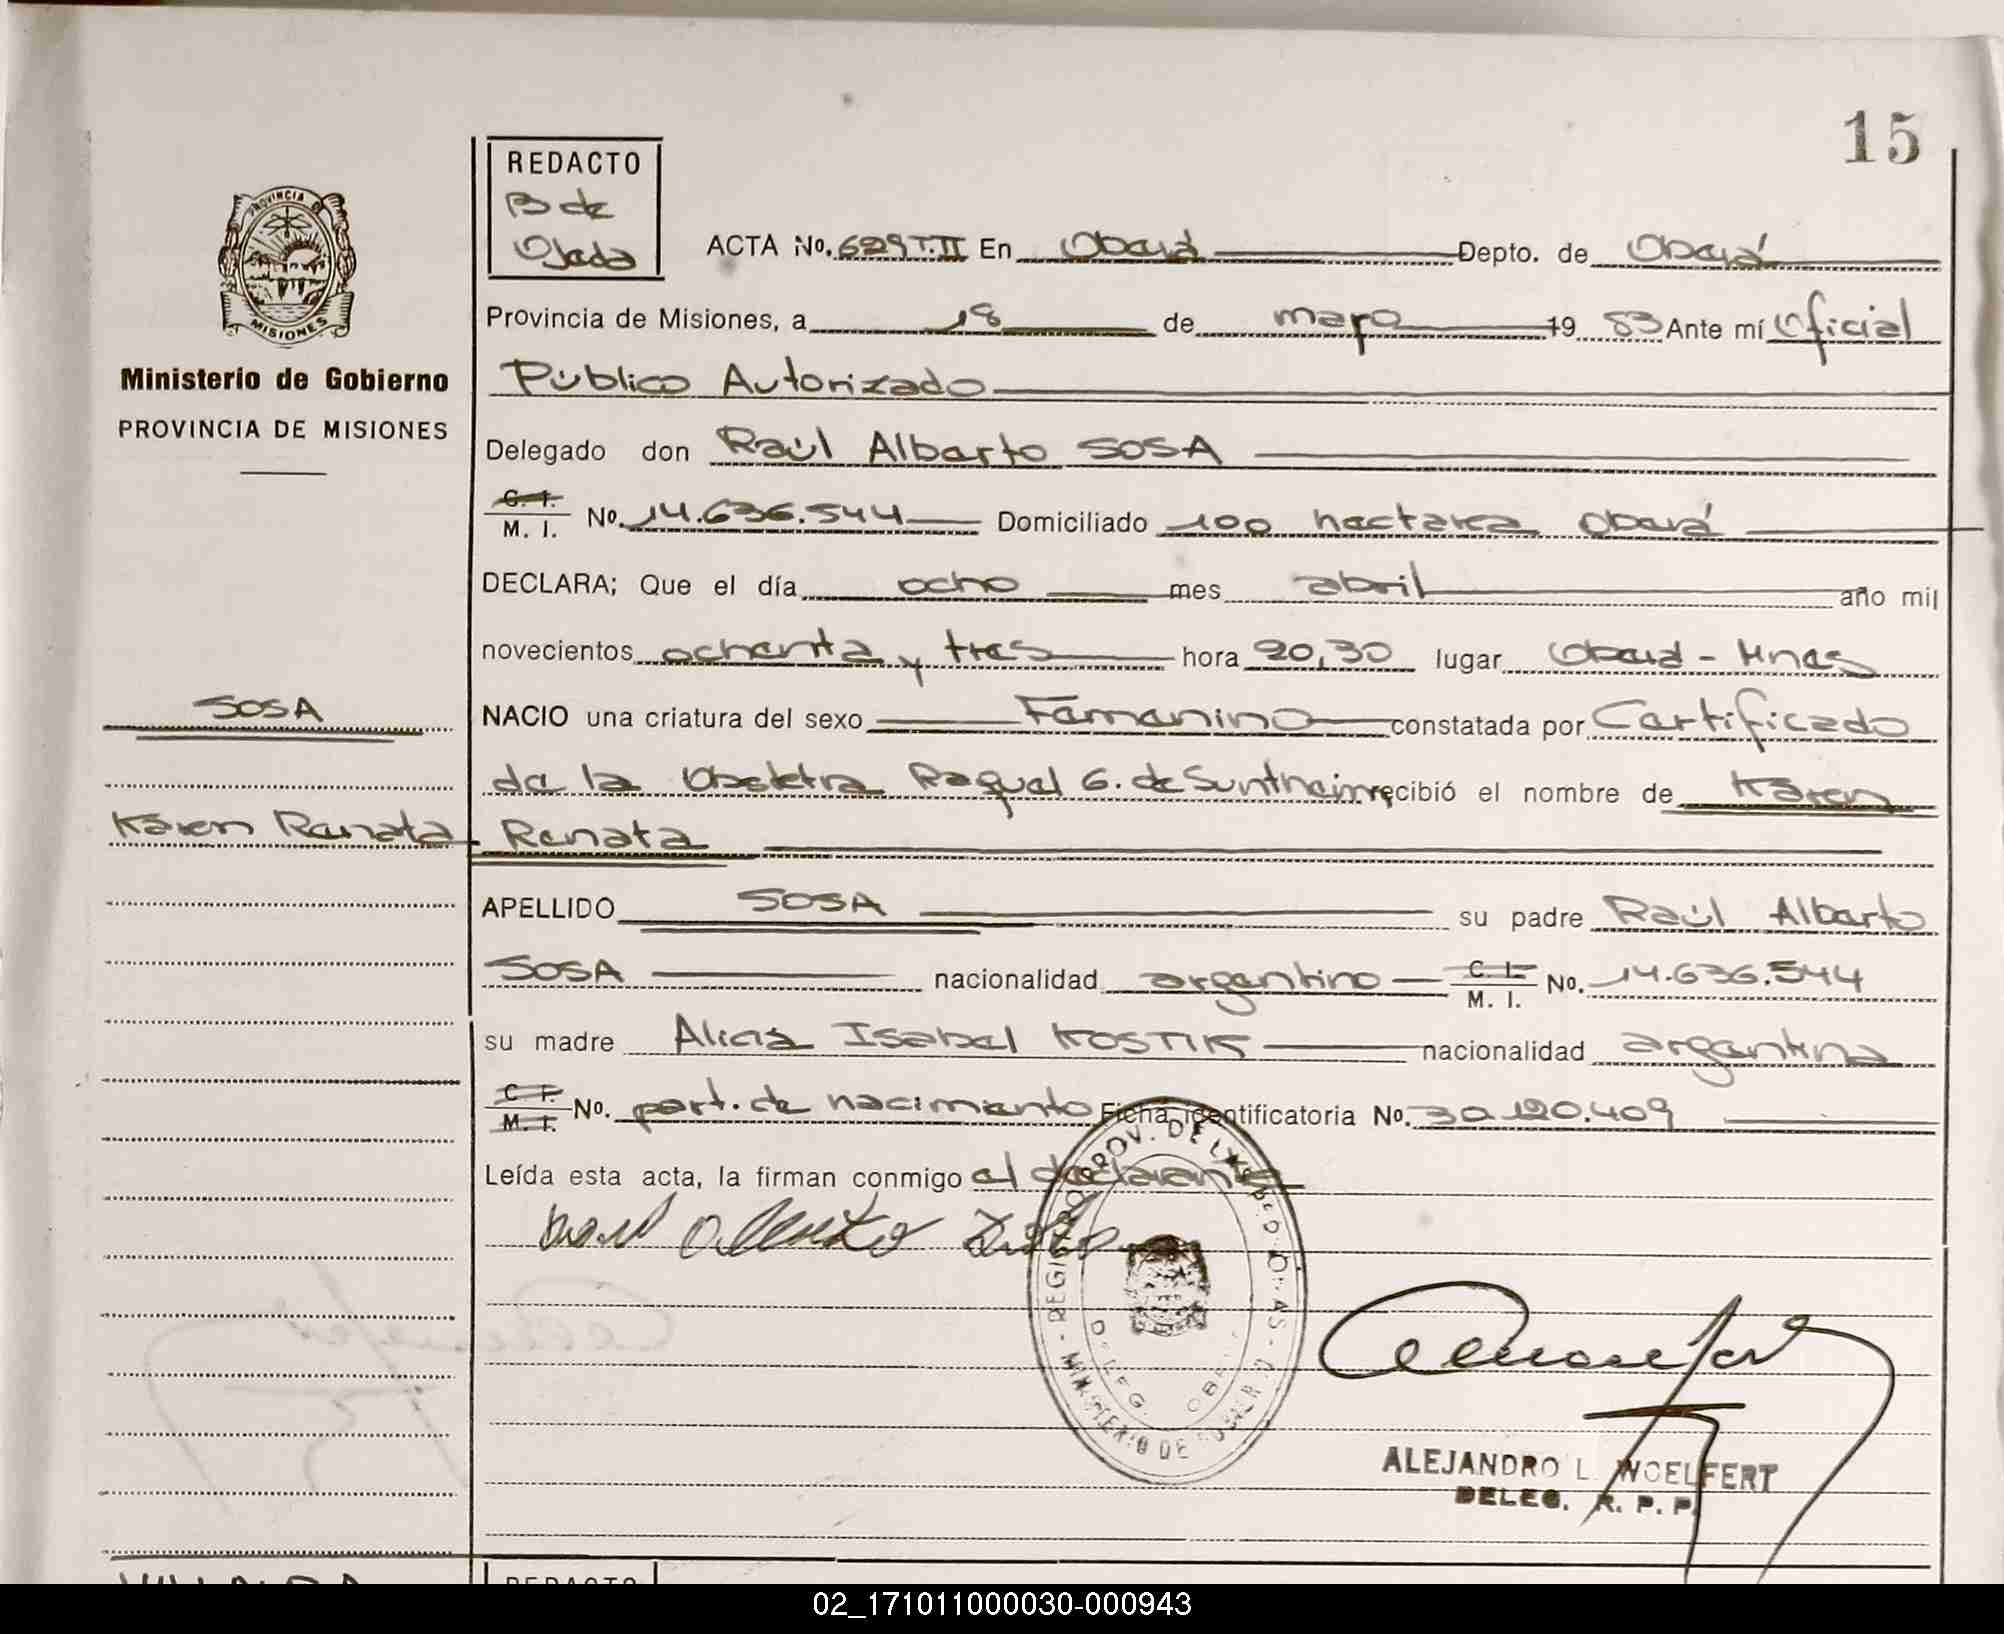 15
REDACTO
B de
Ojeda
ACTA No. 629 T.II En Oberá Depto. de Oberá
Provincia de Misiones, a 18 de mayo 19 83 Ante mí Oficial
Público Autorizado
Delegado don Raúl Alberto SOSA
C. I. M. I. No. 14.636.544 Domiciliado 100 hectarea Oberá
DECLARA; Que el día ocho mes abril año mil
novecientos ochenta y tres hora 20,30 lugar Oberá - Mnes
NACIO una criatura del sexo Femenino constatada por Certificado
de la Obstetra Raquel G. de recibió el nombre de Karen
Renata
APELLIDO SOSA su padre Raúl Alberto
SOSA nacionalidad argentino C. I. M. I. No. 14.636.544
su madre Alicia Isabel KOSTIK nacionalidad argentina
C. I. M. I. No. part. de nacimiento Ficha identificatoria No. 30.120.409
Leída esta acta, la firman conmigo el declarante
PROVINCIA DE
MISIONES
Ministerio de Gobierno
PROVINCIA DE MISIONES
SOSA
Karen Renata
REGISTRO PROV. DE LAS PERSONAS
MINISTERIO DE
DELEG. OBERA
ALEJANDRO L. WOELFERT
DELEG. R. P. P.
REDACTO
02_171011000030-000943